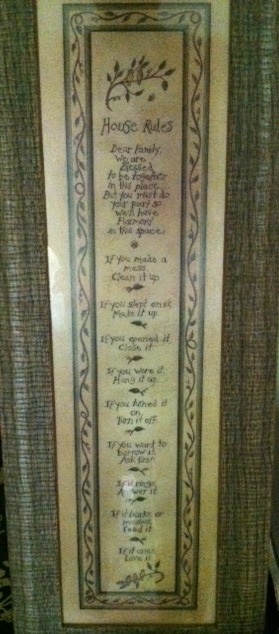 House Rules
Dear Family,
We are
Blessed
to be together
in this place.
But you must do
your part so
we'll have
Harmony
in this space.
If you make a
mess,
Clean it up.
If you slept on it,
Make it up.
If you opened it,
Close it.
If you wore it,
Hang it up.
If you turned it
on,
Turn it off.
If you want to
borrow it,
Ask first.
If it rings,
Answer it.
If it barks or
meows,
Feed it.
If it cries,
Love it.